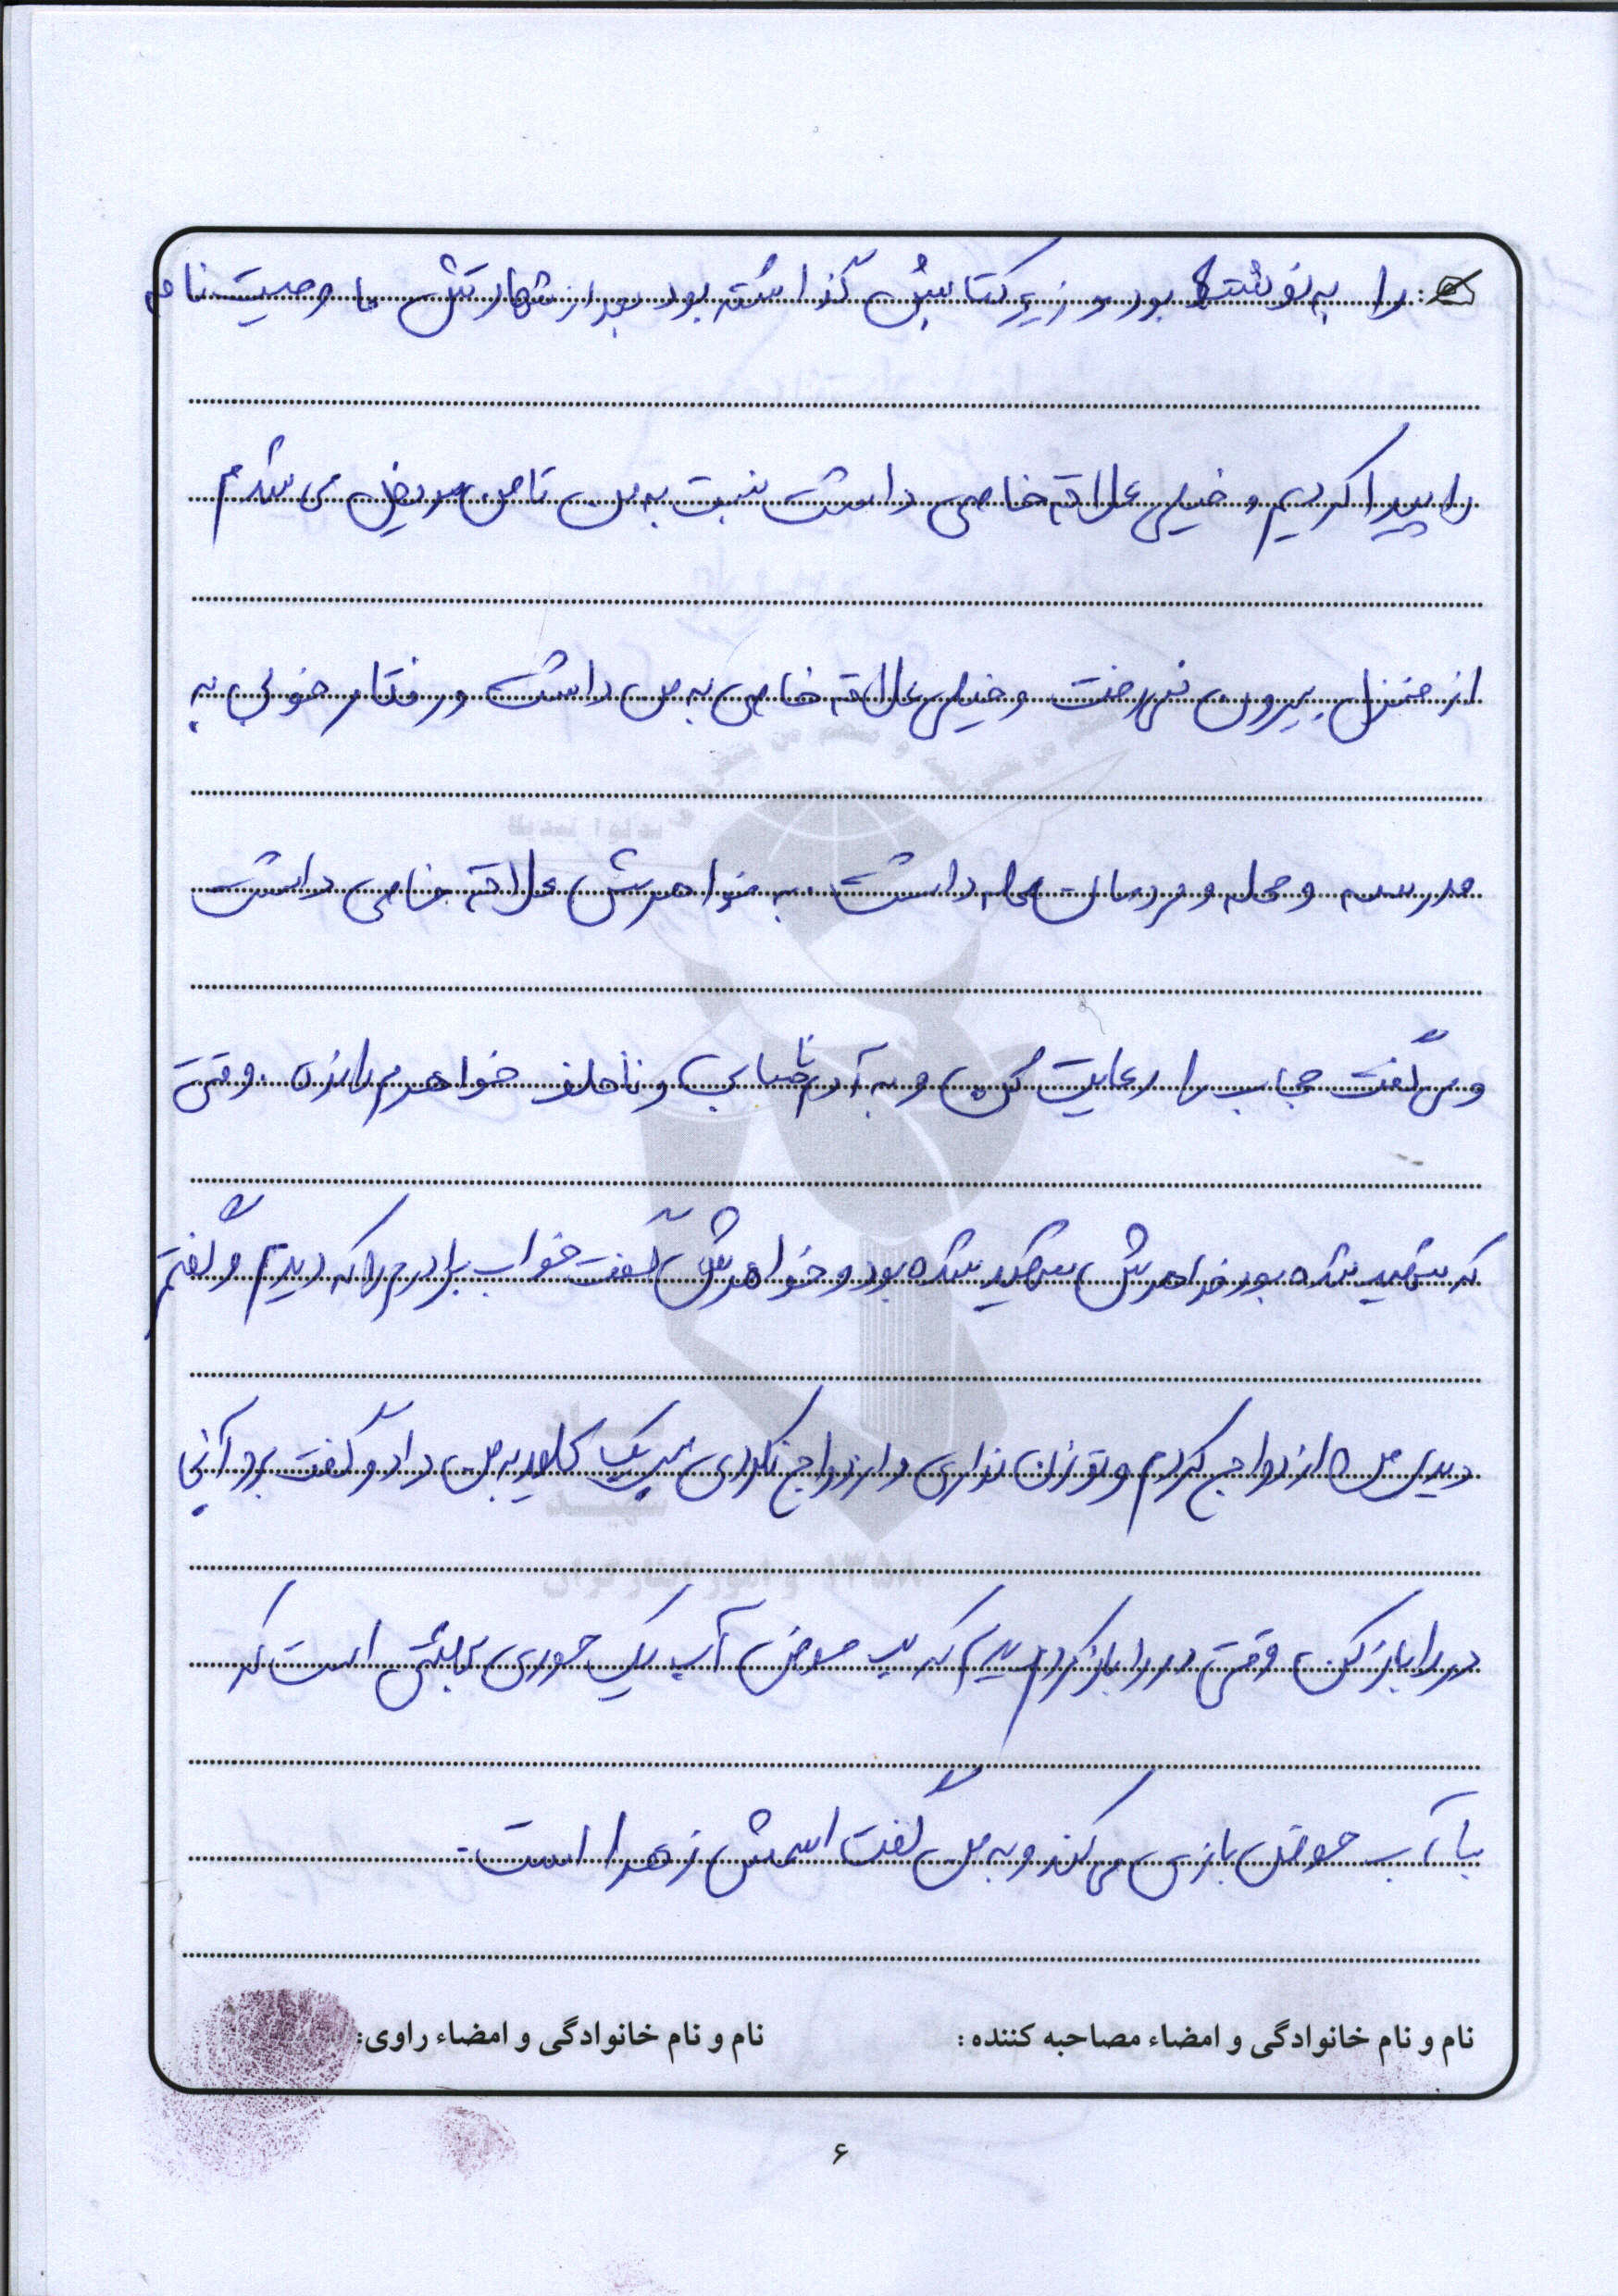 را به نوشته بود و زیر کتابش گذاشته بود بعد از شهادتش ما وصیت نامه
را پیدا کردیم و خیلی علاقه خاصی داشت نسبت به من تا من مریض می شدم
از منزل بیرون نمی رفت و خیلی علاقه خاصی به من داشت و رفتار خوبی به
مدرسه و محله و مردمان محله داشت . به خواهرش علاقه خاصی داشت
و می گفت حجاب را رعایت کن و به آدم ناخلف خواهرم را نزن . وقتی
که شهید شده بود خواهرش شهید شده بود و خواهرش گفت خواب برادرم را که دیدم و گفتم
دیدی من ازدواج کردم و تو زن نداری و ازدواج نکردی یک کلید به من داد و گفت برو آنجا
در را باز کن وقتی در را باز کردم دیدم که لب حوض آب یک حوری بهشتی است که
با آب حوض بازی می کند و به من گفت اسمش زهرا است .
نام و نام خانوادگی و امضاء مصاحبه کننده : نام و نام خانوادگی و امضاء راوی:
۶